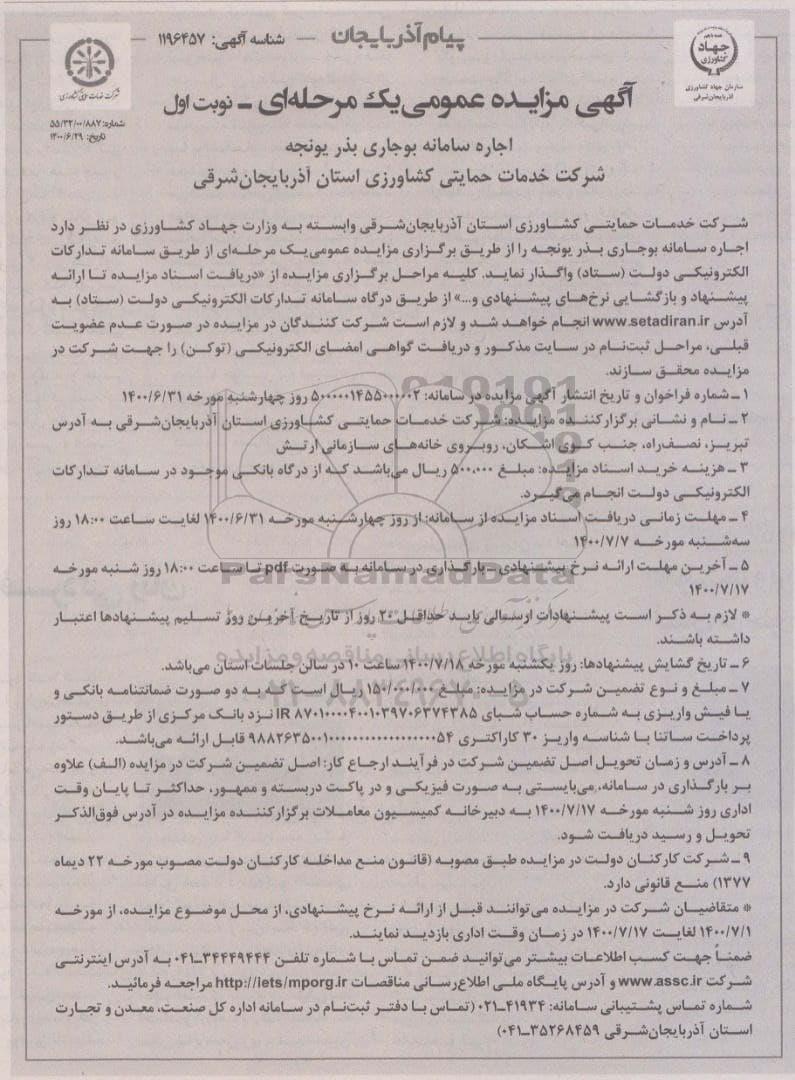 پیام آذربایجان
شناسه آگهی: ۱۱۹۶۴۵۷
جهاد کشاورزی
سازمان جهاد کشاورزی
آذربایجان‌شرقی
شرکت خدمات حمایتی کشاورزی
آگهی مزایده عمومی یک مرحله‌ای ـ نوبت اول
شماره: ۵۵/۳۲/۰۰/۸۸۷
تاریخ: ۱۴۰۰/۶/۲۹
اجاره سامانه بوجاری بذر یونجه
شرکت خدمات حمایتی کشاورزی استان آذربایجان‌شرقی
شرکت خدمات حمایتی کشاورزی استان آذربایجان‌شرقی وابسته به وزارت جهاد کشاورزی در نظر دارد
اجاره سامانه بوجاری بذر یونجه را از طریق برگزاری مزایده عمومی یک مرحله‌ای از طریق سامانه تدارکات
الکترونیکی دولت (ستاد) واگذار نماید. کلیه مراحل برگزاری مزایده از «دریافت اسناد مزایده تا ارائه
پیشنهاد و بازگشایی نرخ‌های پیشنهادی و...» از طریق درگاه سامانه تدارکات الکترونیکی دولت (ستاد) به
آدرس www.setadiran.ir انجام خواهد شد و لازم است شرکت کنندگان در مزایده در صورت عدم عضویت
قبلی، مراحل ثبت‌نام در سایت مذکور و دریافت گواهی امضای الکترونیکی (توکن) را جهت شرکت در
مزایده محقق سازند.
۱ ـ شماره فراخوان و تاریخ انتشار آگهی مزایده در سامانه: ۵۰۰۰۰۰۱۴۵۵۰۰۰۰۰۲ روز چهارشنبه مورخه ۱۴۰۰/۶/۳۱
۲ ـ نام و نشانی برگزارکننده مزایده: شرکت خدمات حمایتی کشاورزی استان آذربایجان‌شرقی به آدرس
تبریز، نصف‌راه، جنب کوی اشکان، روبروی خانه‌های سازمانی ارتش
۳ ـ هزینه خرید اسناد مزایده: مبلغ ۵۰۰،۰۰۰ ریال می‌باشد که از درگاه بانکی موجود در سامانه تدارکات
الکترونیکی دولت انجام می‌گیرد.
۴ ـ مهلت زمانی دریافت اسناد مزایده از سامانه: از روز چهارشنبه مورخه ۱۴۰۰/۶/۳۱ لغایت ساعت ۱۸:۰۰ روز
سه‌شنبه مورخه ۱۴۰۰/۷/۷
۵ ـ آخرین مهلت ارائه نرخ پیشنهادی ـ بارگذاری در سامانه به صورت pdf تا ساعت ۱۸:۰۰ روز شنبه مورخه
۱۴۰۰/۷/۱۷
ParsNamadData
* لازم به ذکر است پیشنهادات ارسالی باید حداقل ۲۰ روز از تاریخ آخرین روز تسلیم پیشنهادها اعتبار
داشته باشند.
پایگاه اطلاع رسانی مناقصه و مزایده
۶ ـ تاریخ گشایش پیشنهادها: روز یکشنبه مورخه ۱۴۰۰/۷/۱۸ ساعت ۱۰ در سالن جلسات استان می‌باشد.
۷ ـ مبلغ و نوع تضمین شرکت در مزایده: مبلغ ۱۵۰/۰۰۰/۰۰۰ ریال است که به دو صورت ضمانتنامه بانکی و
یا فیش واریزی به شماره حساب شبای IR ۸۷۰۱۰۰۰۰۴۰۰۱۰۳۹۷۰۶۳۷۴۳۸۵ نزد بانک مرکزی از طریق دستور
پرداخت ساتنا با شناسه واریز ۳۰ کاراکتری قابل ارائه می‌باشد.
۸ ـ آدرس و زمان تحویل اصل تضمین شرکت در فرآیند ارجاع کار: اصل تضمین شرکت در مزایده (الف) علاوه
بر بارگذاری در سامانه، می‌بایستی به صورت فیزیکی و در پاکت دربسته و ممهور، حداکثر تا پایان وقت
اداری روز شنبه مورخه ۱۴۰۰/۷/۱۷ به دبیرخانه کمیسیون معاملات برگزارکننده مزایده در آدرس فوق‌الذکر
تحویل و رسید دریافت شود.
۹ ـ شرکت کارکنان دولت در مزایده طبق مصوبه (قانون منع مداخله کارکنان دولت مصوب مورخه ۲۲ دیماه
۱۳۷۷) منع قانونی دارد.
* متقاضیان شرکت در مزایده می‌توانند قبل از ارائه نرخ پیشنهادی، از محل موضوع مزایده، از مورخه
۱۴۰۰/۷/۱ لغایت ۱۴۰۰/۷/۱۷ در زمان وقت اداری بازدید نمایند.
ضمناً جهت کسب اطلاعات بیشتر می‌توانید ضمن تماس با شماره تلفن ۳۴۴۴۹۴۴۴-۰۴۱ به آدرس اینترنتی
شرکت www.assc.ir و آدرس پایگاه ملی اطلاع‌رسانی مناقصات http://iets/mporg.ir مراجعه فرمائید.
شماره تماس پشتیبانی سامانه: ۴۱۹۳۴-۰۲۱ (تماس با دفتر ثبت‌نام در سامانه اداره کل صنعت، معدن و تجارت
استان آذربایجان‌شرقی ۳۵۲۶۸۴۵۹-۰۴۱)